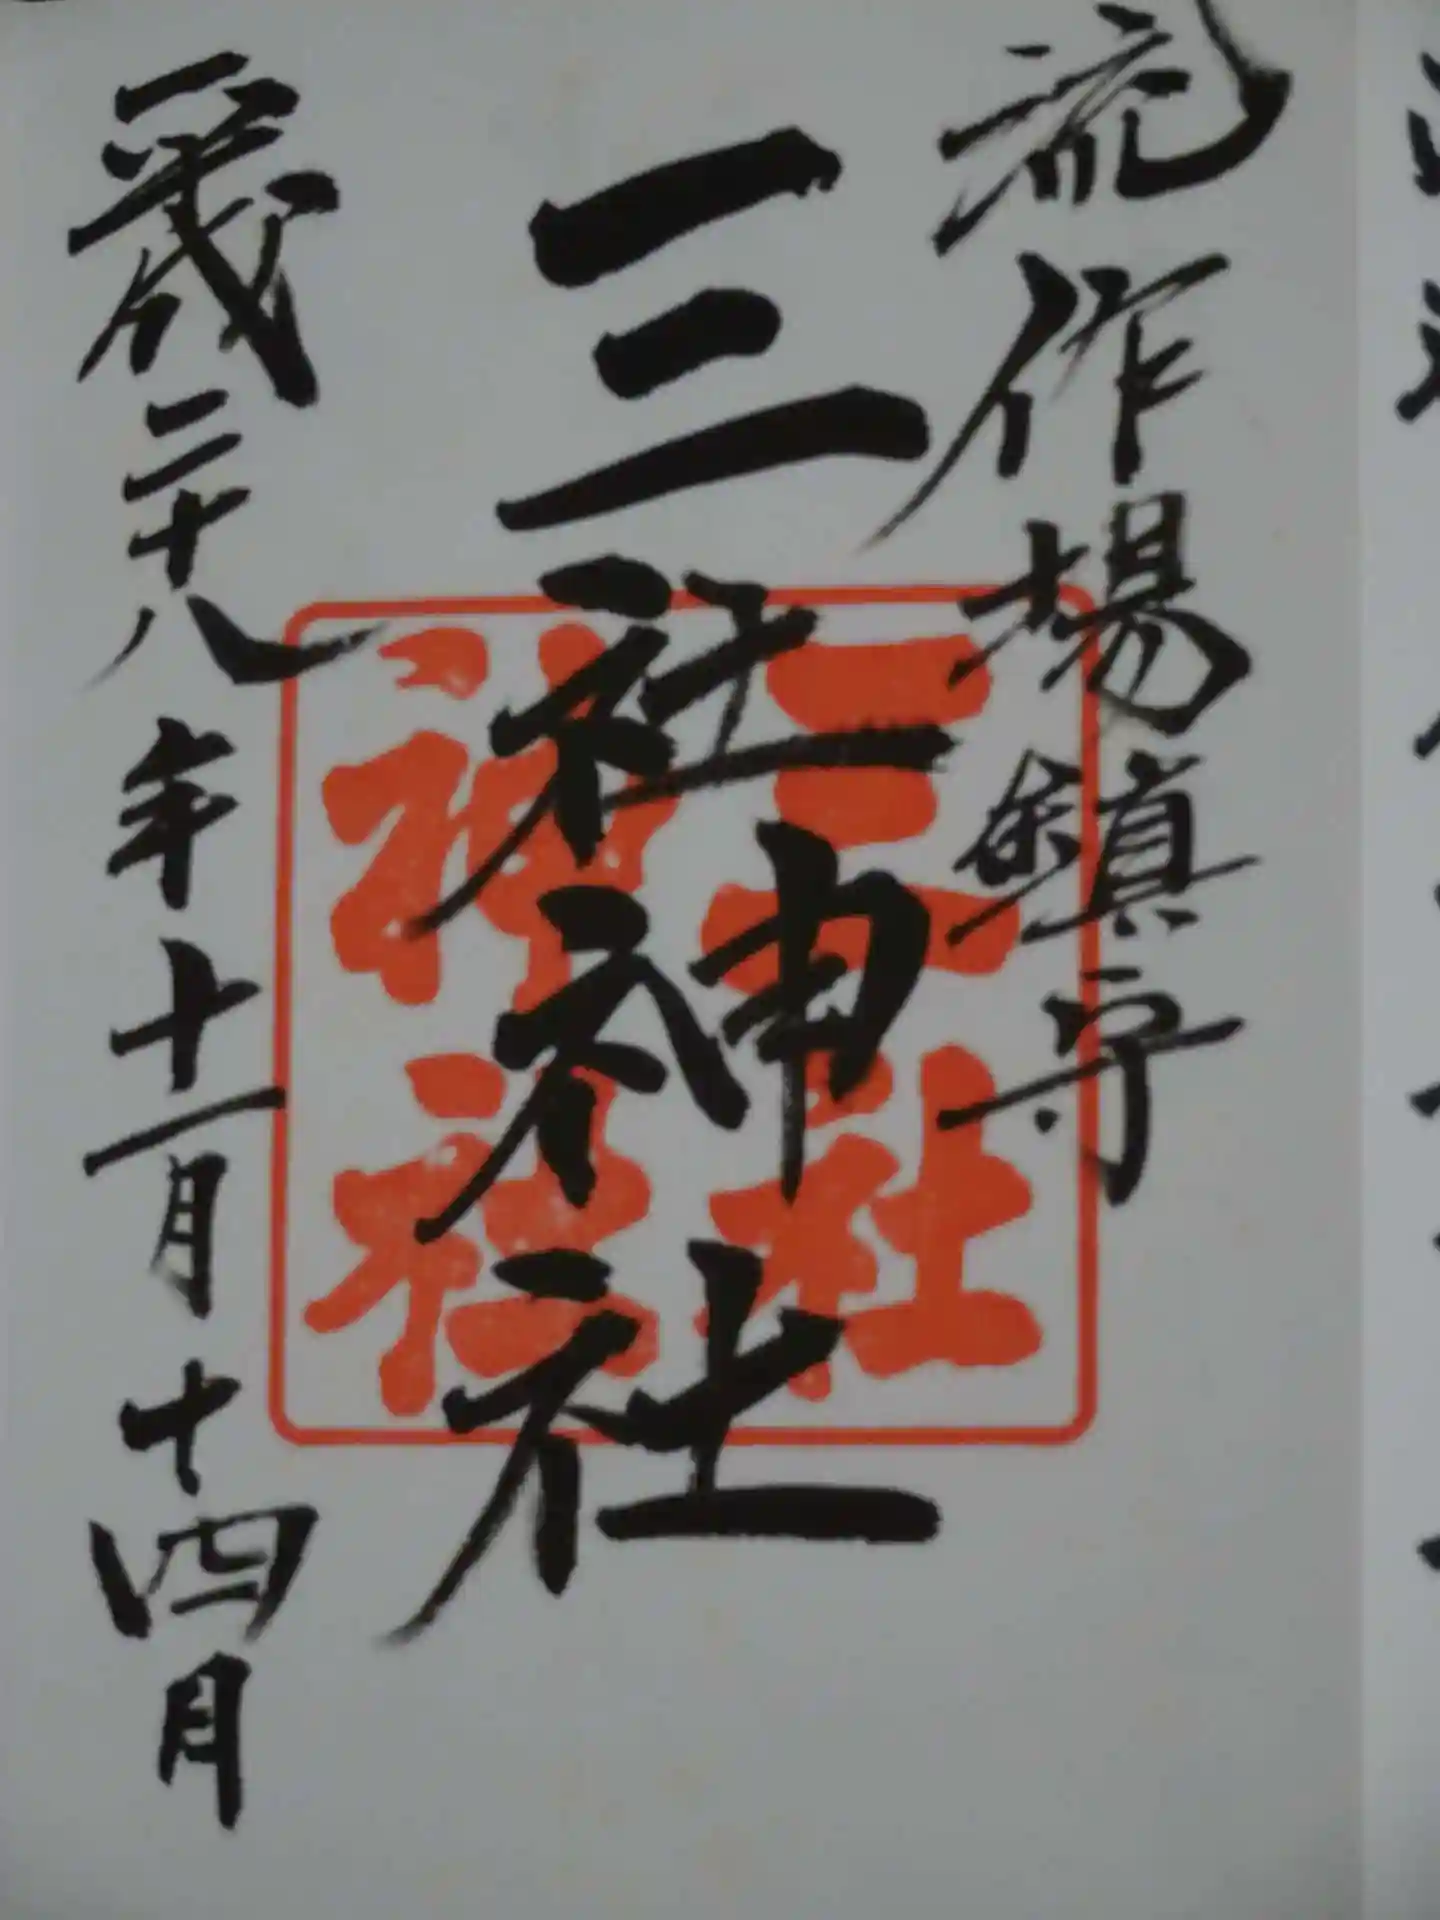 流作場鎮守
三社神社
三社
神社
平成二十八年十一月十四日